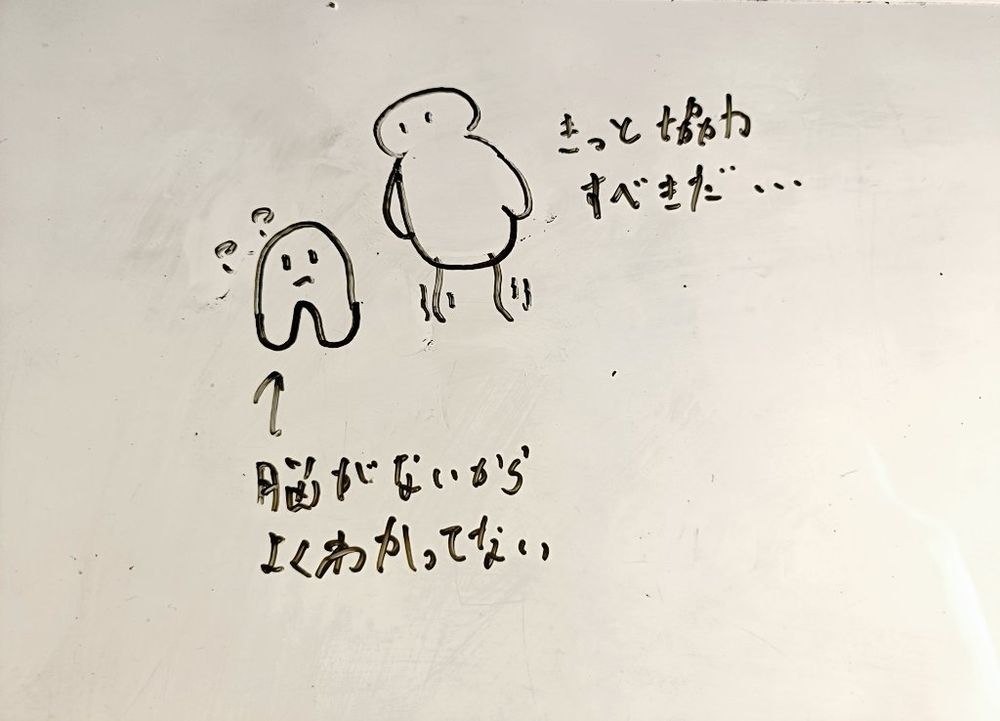 きっと協力
すべきだ…
? ?
脳がないから
よくわかってない